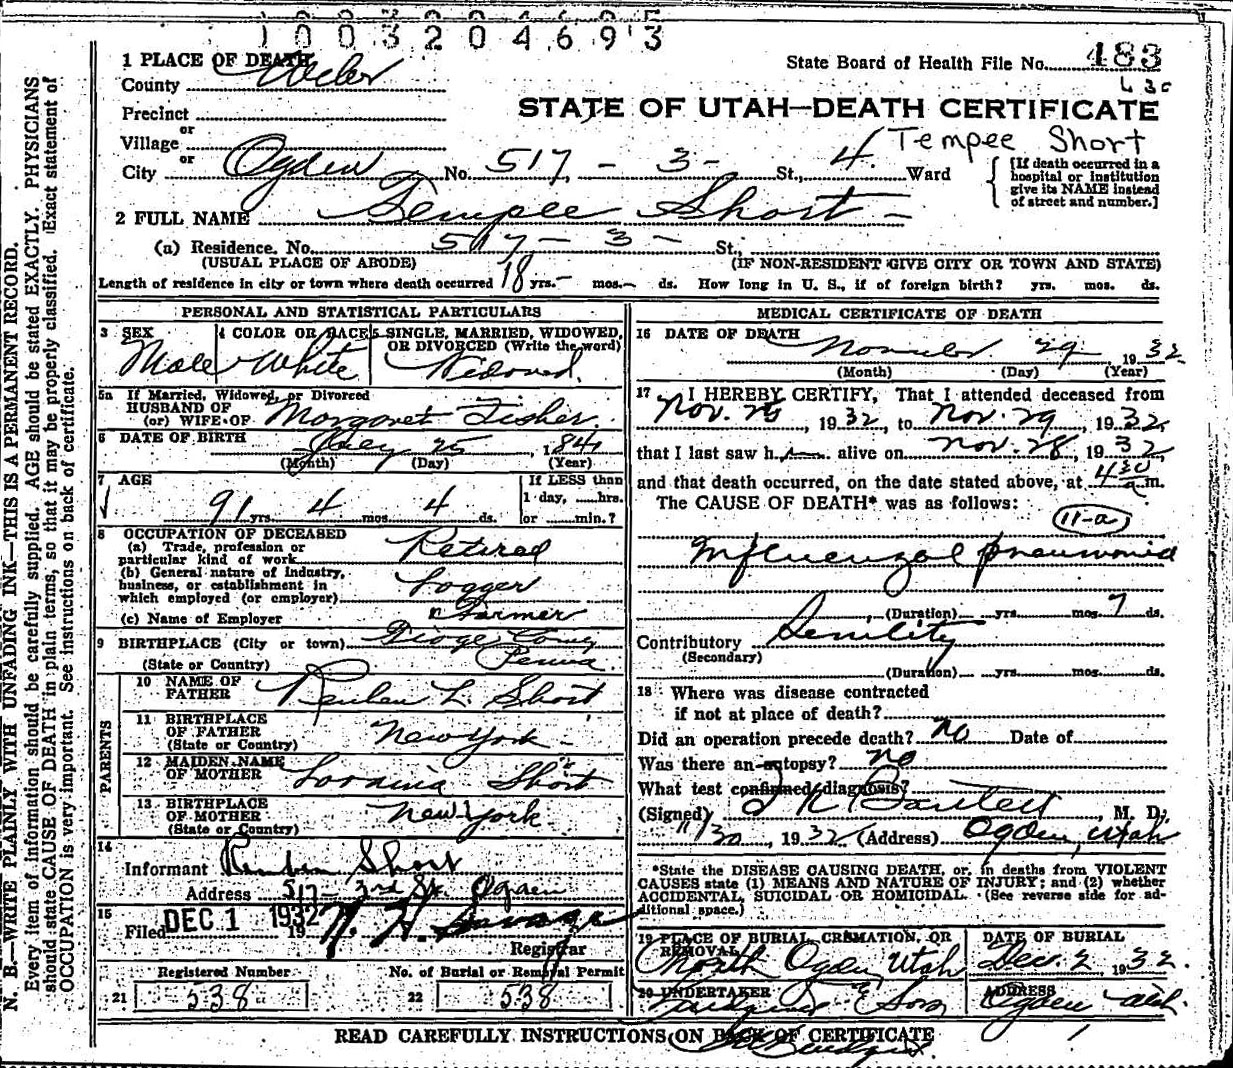 1003204693
1 PLACE OF DEATH
County Weber
State Board of Health File No. 483
Precinct
STATE OF UTAH—DEATH CERTIFICATE
or
Village
Tempee Short
or
City Ogden No. 517 - 3 - St., 4. Ward
[If death occurred in a hospital or institution give its NAME instead of street and number.]
2 FULL NAME Tempee Short
(a) Residence. No. 517 - 3 - St.,
(USUAL PLACE OF ABODE) (IF NON-RESIDENT GIVE CITY OR TOWN AND STATE)
Length of residence in city or town where death occurred 18 yrs. - mos. - ds. How long in U. S., if of foreign birth? yrs. mos. ds.
PERSONAL AND STATISTICAL PARTICULARS
3 SEX Male
4 COLOR OR RACE White
5 SINGLE, MARRIED, WIDOWED, OR DIVORCED (Write the word) Widowed.
5a If Married, Widowed, or Divorced
HUSBAND OF
(or) WIFE OF Margaret Fisher
6 DATE OF BIRTH July 25, 1841
(Month) (Day) (Year)
7 AGE
91 yrs. 4 mos. 4 ds.
If LESS than 1 day, ......hrs. or ......min.?
8 OCCUPATION OF DECEASED
(a) Trade, profession or particular kind of work Retired
(b) General nature of industry, business, or establishment in which employed (or employer) Logger
(c) Name of Employer Farmer
9 BIRTHPLACE (City or town)
(State or Country) Penna.
PARENTS
10 NAME OF FATHER Reuben L. Short
11 BIRTHPLACE OF FATHER (State or Country) New York -
12 MAIDEN NAME OF MOTHER Short
13 BIRTHPLACE OF MOTHER (State or Country) New York
14
Informant Reuben Short
Address 517 - 3rd St. Ogden
15
Filed DEC 1 1932 19
Registrar
Registered Number
21 538
No. of Burial or Removal Permit
22 538
MEDICAL CERTIFICATE OF DEATH
16 DATE OF DEATH
November 29 1932
(Month) (Day) (Year)
17 I HEREBY CERTIFY, That I attended deceased from
Nov. 1932, to Nov. 29, 1932,
that I last saw h alive on Nov. 28, 1932,
and that death occurred, on the date stated above, at 4 30 a m.
The CAUSE OF DEATH* was as follows:
11-a
Influenzal pneumonia
(Duration) yrs. mos. 7 ds.
Contributory Senility
(Secondary)
(Duration) yrs. mos. ds.
18 Where was disease contracted
if not at place of death?
Did an operation precede death? no Date of
Was there an autopsy? no
What test confirmed diagnosis?
(Signed) Bartlett, M. D.
11/30, 1932 (Address) Ogden, Utah
*State the DISEASE CAUSING DEATH, or, in deaths from VIOLENT
CAUSES state (1) MEANS AND NATURE OF INJURY; and (2) whether
ACCIDENTAL, SUICIDAL OR HOMICIDAL. (See reverse side for additional space.)
19 PLACE OF BURIAL, CREMATION, OR REMOVAL
North Ogden, Utah
DATE OF BURIAL
Dec. 2, 1932.
20 UNDERTAKER
& Sons
ADDRESS
Ogden Utah.
READ CAREFULLY INSTRUCTIONS ON BACK OF CERTIFICATE
N. B.—WRITE PLAINLY WITH UNFADING INK—THIS IS A PERMANENT RECORD.
Every item of information should be carefully supplied. AGE should be stated EXACTLY. PHYSICIANS
should state CAUSE OF DEATH in plain terms, so that it may be properly classified. Exact statement of
OCCUPATION is very important. See instructions on back of certificate.